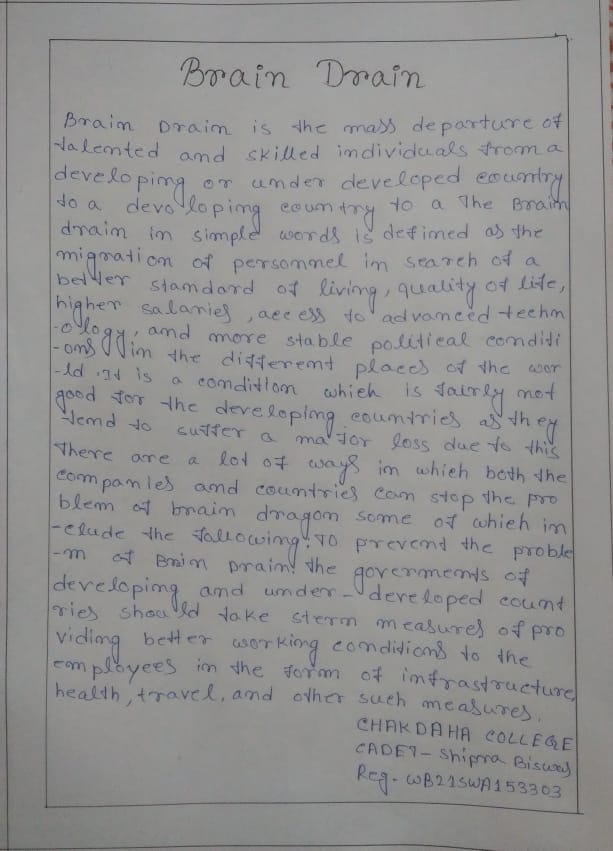 Brain Drain
Brain Drain is the mass departure of
talented and skilled individuals from a
developing or under developed country
to a devo loping country to a The Brain
drain in simple words is defined as the
migration of personnel in search of a
better standard of living, quality of life,
higher salaries, access to advanced techn
-ology, and more stable political conditi
-ons in the different places of the wor
-ld. It is a condition which is fairly not
good for the developing countries as they
tend to suffer a major loss due to this
There are a lot of ways in which both the
companies and countries can stop the pro
blem of brain dragon some of which in
-clude the following: To prevent the proble
-m of Brain Drain! the goverments of
developing and under-developed count
ries should take stern measures of pro
viding better working conditions to the
employees in the form of infrastructure,
health, travel, and other such measures.
CHAKDAHA COLLEGE
CADET- Shipra Biswas
Reg. WB21SWA153303